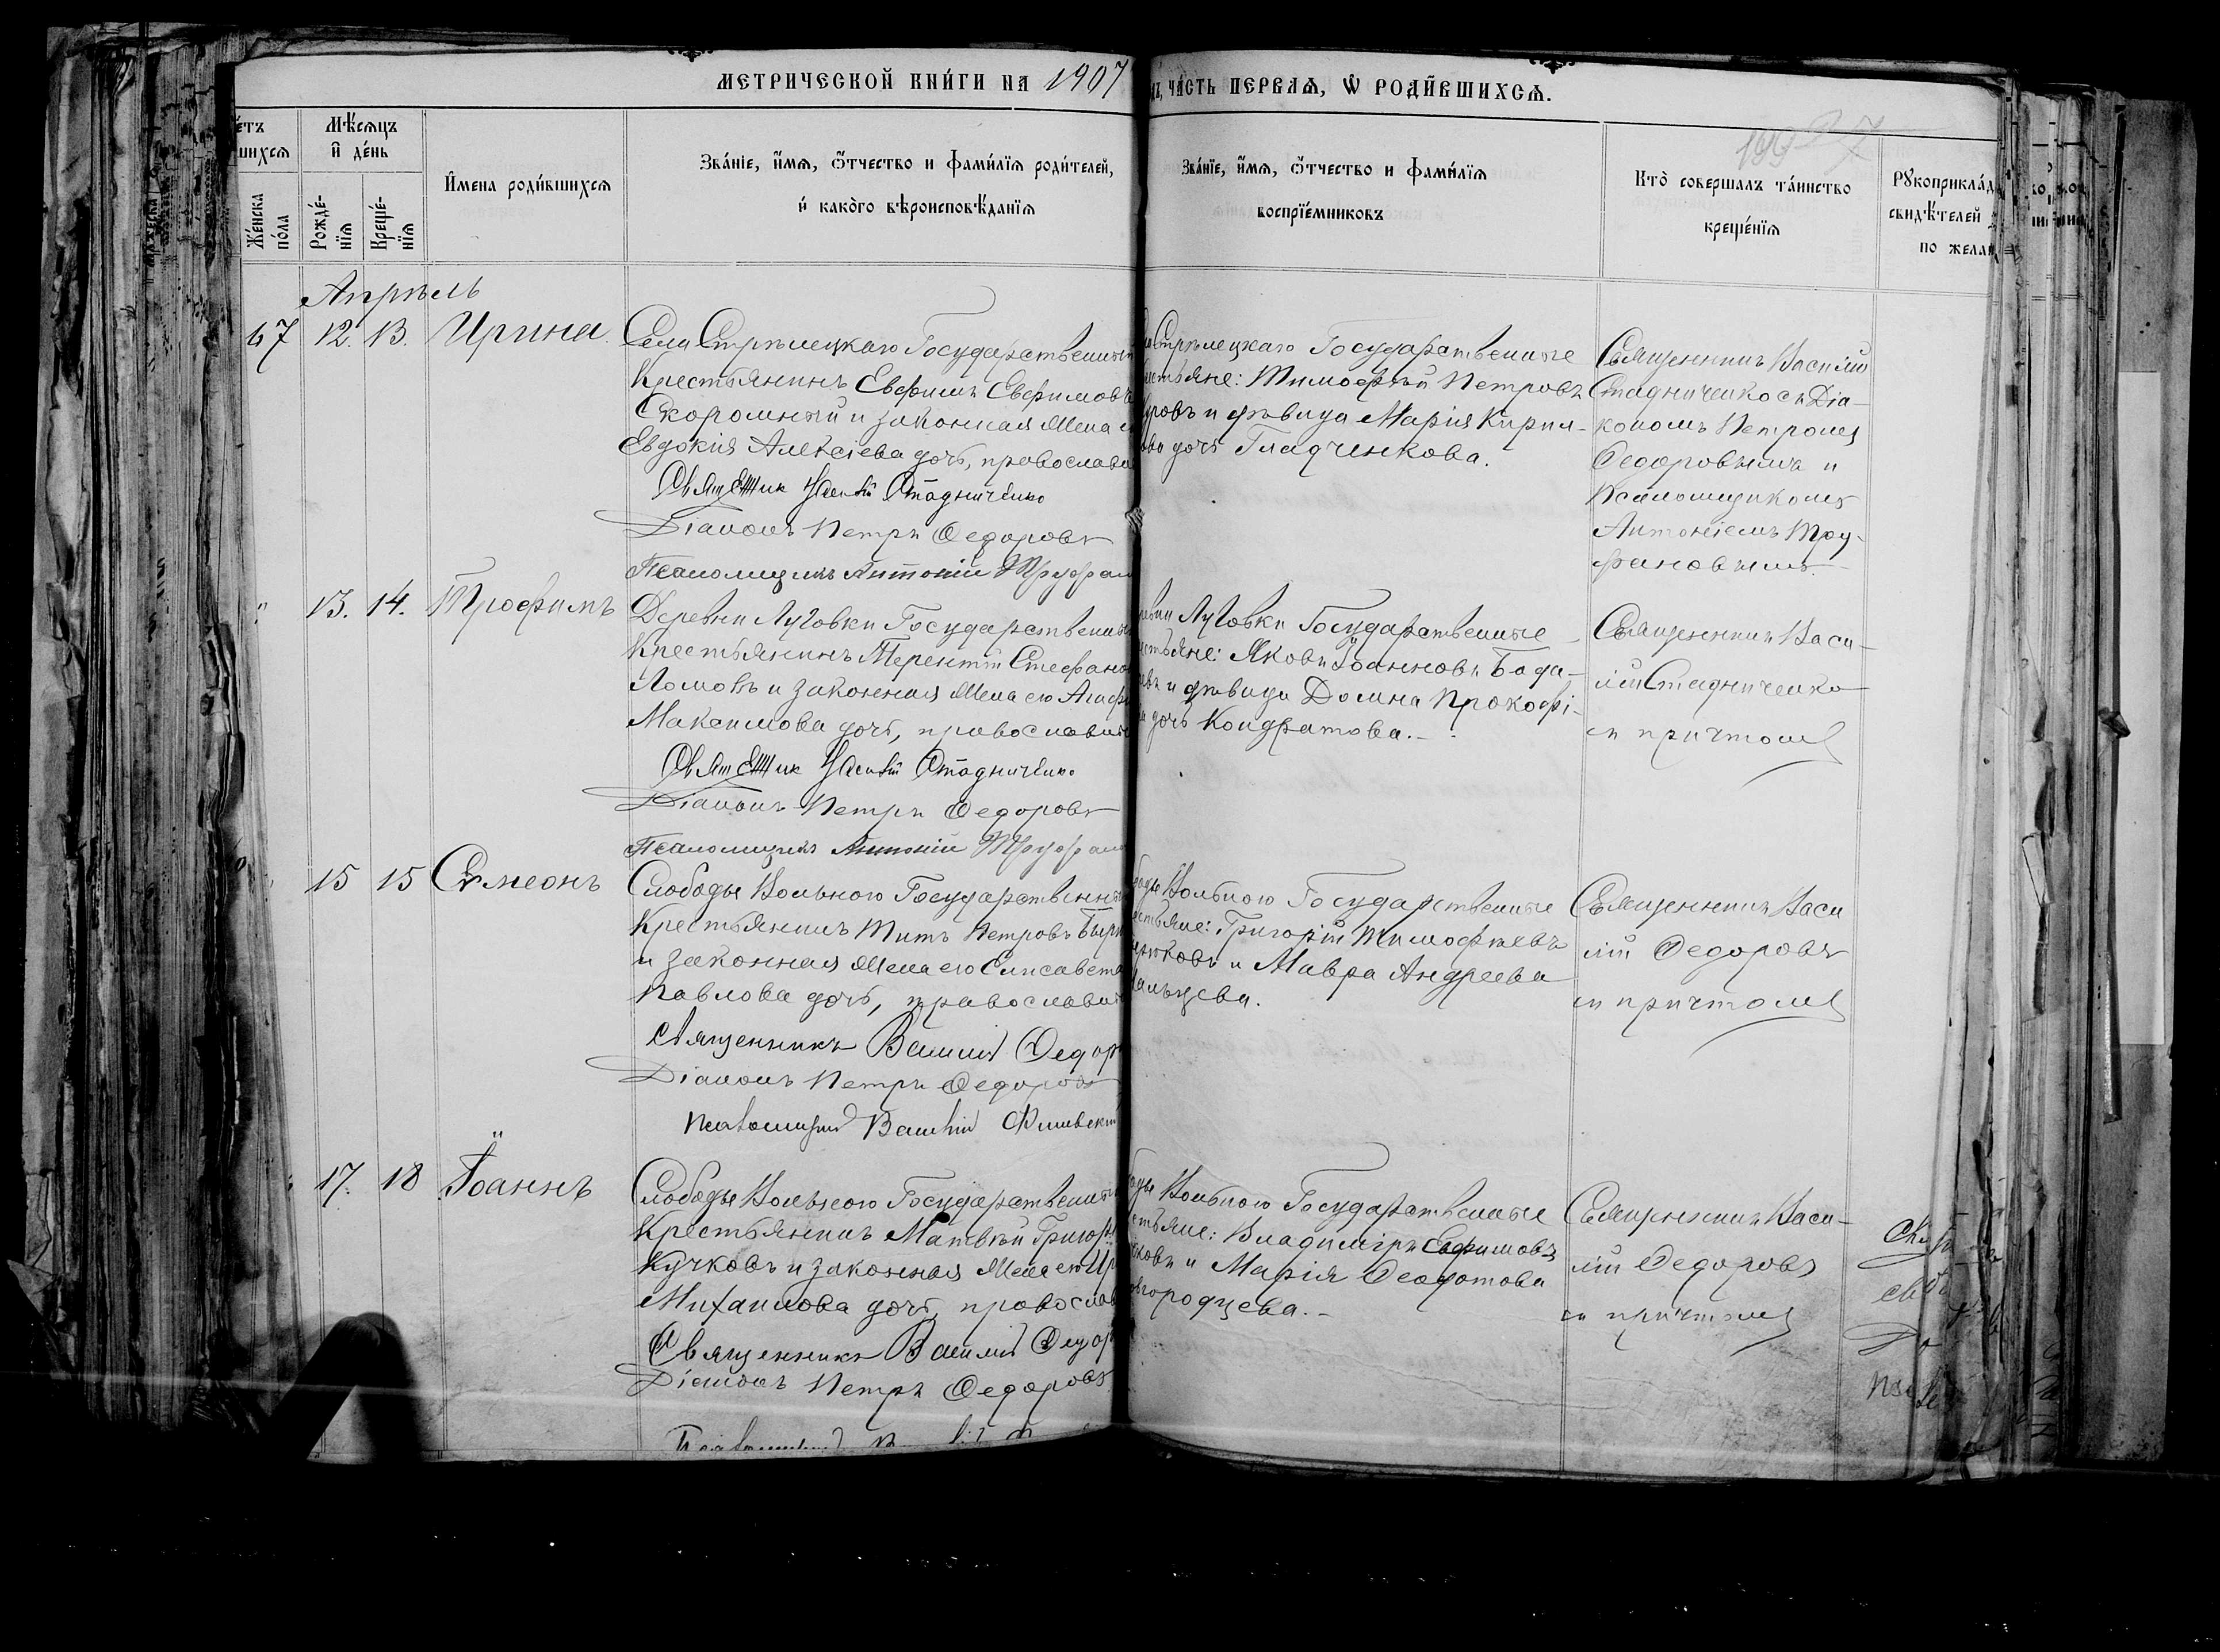 МЕТРИЧЕСКОЙ КНИ́ГИ НА 1907
ЧА́СТЬ ПЕРВАѦ, Ѿ РОДИ́ВШИХСѦ.
Мѣ́сѧцъ
и҆ де́нь
шихсѧ
Же́нска
по́ла
Рожде́-
нїѧ
Креще́-
нїѧ
И҆мена роди́вшихсѧ
Зва́нїе, и҆́мѧ, ѻ҆́тчество и фами́лїѧ роди́телей,
и҆ како́го вѣроисповѣ́данїѧ
Зва́нїе, и҆́мѧ, ѻ҆́тчество и фами́лїѧ
воспрїе́мниковъ
Кто̀ соверша́лъ та́инство
креще́нїѧ
Рꙋкоприкла́д
свидѣ́телей
по жела
Апрѣль
67 12. 13. Ирина.
Села Стрѣлецкаго Государственный
Крестьянинъ Евфимъ Евфимовъ
Скоромный и законная жена е
Евдокія Алексіева дочь, православн
Священник Василій Стадниченко
Діаконъ Петръ Федоровъ
Псаломщикъ Антоній Труфан
Стрѣлецкаго Государственные
стьяне: Тимофѣй Петровъ
ровъ и дѣвица Марія Кирил-
ова дочь Гладченкова.
Священникъ Василій
Стадниченко съ Діа-
кономъ Петромъ
Федоровымъ и
Псаломщикомъ
Антоніемъ Тру-
фановымъ.
13. 14. Трофимъ
Деревни Луговки Государственный
Крестьянинъ Терентій Стефано
Ломовъ и законная жена его Агаф
Максимова дочь, православны
Священник Василій Стадниченко
Діаконъ Петръ Федоровъ
Псаломщикъ Антоній Труфано
Луговки Государственные
стьяне: Яковъ Іоанновъ Бода-
въ и дѣвица Домна Прокофі-
дочь Кондратова.-
Священникъ Васи-
лій Стадниченко
съ причтомъ
15 15 Сѵмеонъ
Слободы Вольного Государственны
Крестьянинъ Титъ Петровъ Бири
и законная жена его Елисавета
Павлова дочь, православны
Священникъ Василій Федор
Діаконъ Петръ Федоровъ
Псаломщикъ Василій
Вольного Государственные
стьяне: Григорій Тимофѣевъ
рюковъ и Мавра Андреева
альцева.
Священникъ Васи
лій Федоровъ
съ причтомъ
17. 18 Іоаннъ
Слободы Вольного Государственны
Крестьянинъ Матвѣй Григорь
Кучковъ и законная жена его Ир
Михаилова дочь, православ
Священникъ Василій Федор
Діаконъ Петръ Федоровъ
Вольного Государственные
стьяне: Владиміръ Евфимовъ
чковъ и Марія Феодотова
овгородцева.-
Священникъ Васи-
лій Федоровъ
съ причтомъ